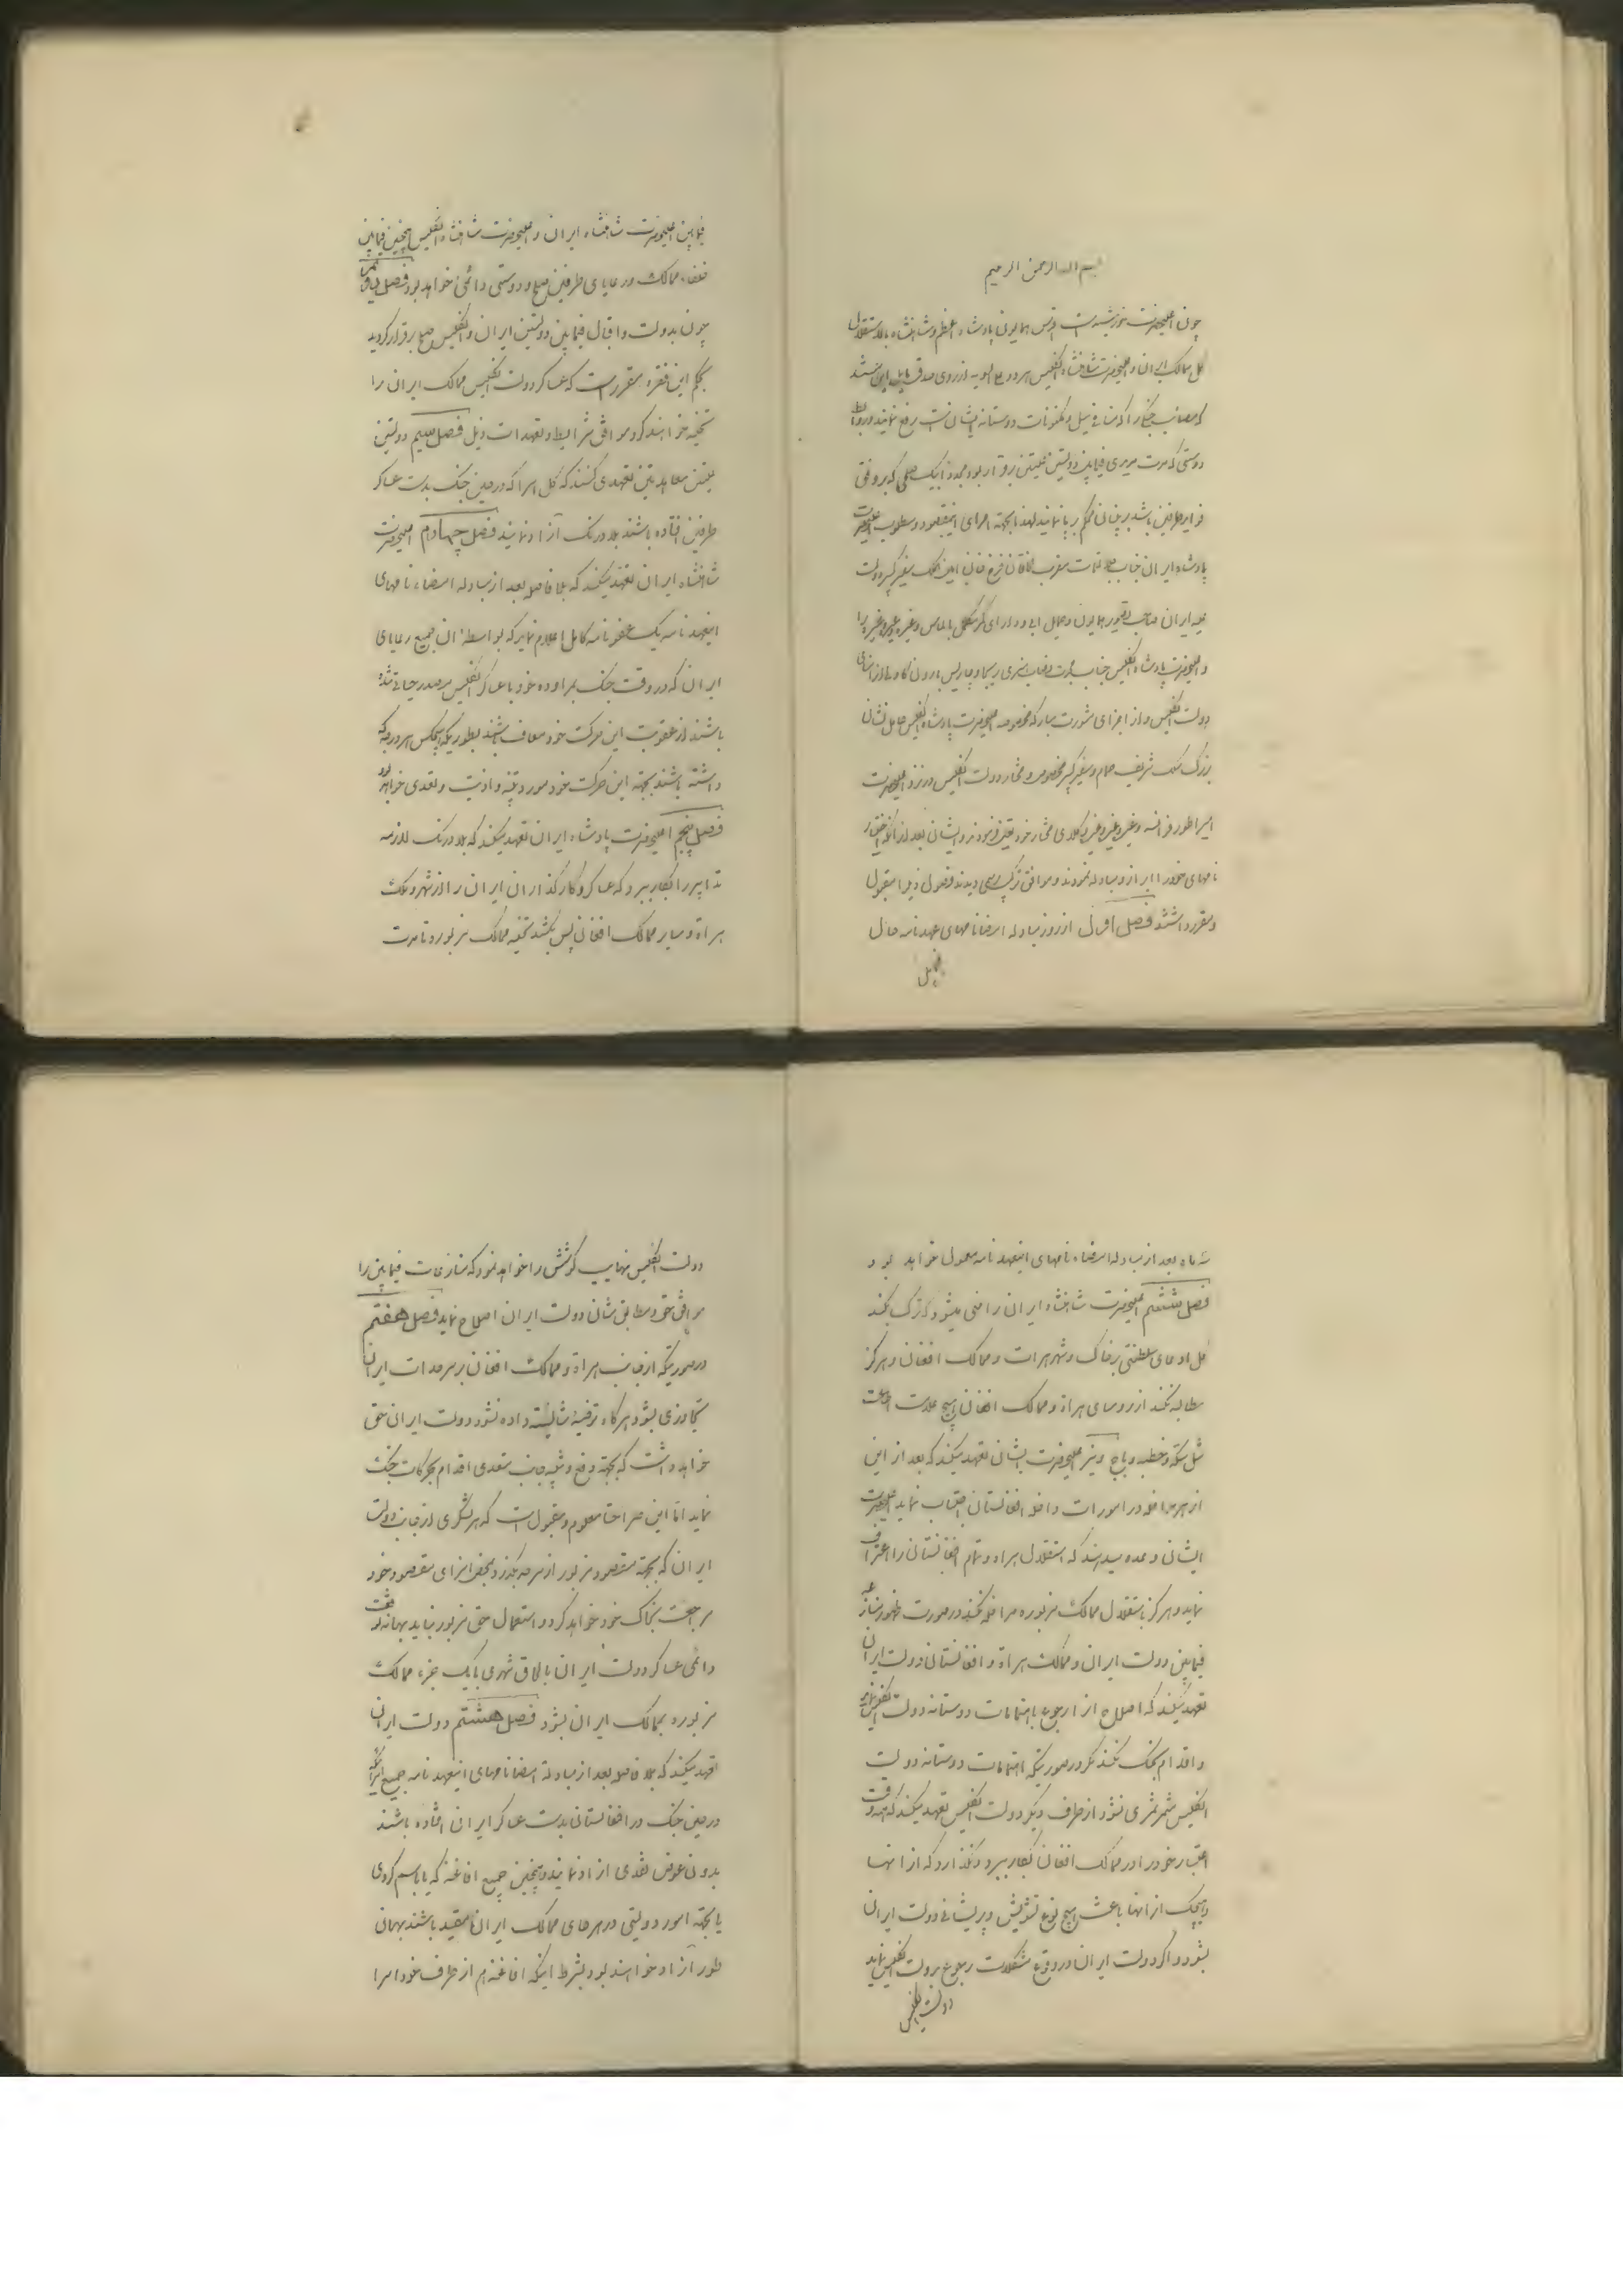 بسم الله الرحمن الرحیم
چون اعلیحضرت خورشید رایت اقدس همایون پادشاه اعظم و شاهنشاه بالاستقلال
کل ممالک ایران و اعلیحضرت شاهنشاه انگلیس هر دو علی السویه از روی صدق مایل این هستند
که مصائب جنگ را که منافی میل و مکنونات دوستانه ایشان است رفع نمایند و روابط
دوستی که مدت مدیدی فیمابین دولتین علیتین برقرار بود مجددا بیک صلحی که بر وفق
فواید طرفین باشد بر بنیان محکم برپا نمایند لهذا بجهة اجرای اینمقصود و مطلوب اعلیحضرت
پادشاه ایران جناب جلالتمآب مقرب الخاقان فرخ خان امین الملک سفیر کبیر دولت
علیه ایران صاحب تصویر همایون و حمایل آبی و دارای کمر مکلل بالماس و غیره و غیره و غیره را
و اعلیحضرت پادشاه انگلیس جناب مجدت نصاب هنری ریچارد چارلس بارون کاولی از امنای
دولت انگلیس و از اجزای مشورت مبارکه مخصوصه اعلیحضرت پادشاه انگلیس حامل نشان
بزرگ بسیار شریف حمام و سفیر کبیر مخصوص و مختار دولت انگلیس در نزد اعلیحضرت
امپراطور فرانسه و غیره و غیره و غیره وکلای مختار خود تعیین فرمودند و ایشان بعد از آنکه اختیار
نامهای خود را ابراز و مبادله نمودند و موافق ترتیب رسمی دیدند فصول ذیل را مقبول
و مقرر داشتند فصل اول از روز مبادله امضانامهای عهدنامه حال
فیمابین اعلیحضرت شاهنشاه ایران و اعلیحضرت شاهنشاه انگلیس و همچنین فیمابین
خلفا، ممالک و رعایای طرفین صلح و دوستی دائمی خواهد بود فصل دوم
چون بدولت و اقبال فیمابین دولتین ایران و انگلیس صلح برقرار گردید
بحکم این فقره مقرر است که عساکر دولت انگلیس ممالک ایران را
تخلیه خواهند کرد موافق شرایط و تعهدات ذیل فصل سیم دولتین
علیتین معاهدتین تعهد می کنند که کل اسرا که در حین جنگ بدست عساکر
طرفین افتاده باشند بلادرنگ آزاد نمایند فصل چهارم اعلیحضرت
شاهنشاه ایران تعهد میکند که بلافاصله بعد از مبادله امضاء نامهای
اینعهدنامه یک عفونامه کامل اعلام نماید که بواسطه آن جمیع رعایای
ایران که در وقت جنگ بمراوده خود با عساکر انگلیس مصدر خیانتی شده
باشند از عقوبت این حرکت خود معاف باشند بطوریکه هیچکس هر درجه که
داشته باشند بجهة این حرکت خود مورد تنبیه و اذیت و تعدی نخواهد بود
فصل پنجم اعلیحضرت پادشاه ایران تعهد میکند که بلادرنگ لازمه
تدابیر را بکار ببرد که عساکر و کارگذاران ایران را از شهر و ملک
هراة و سایر ممالک افغان پس بکشد تخلیه ممالک مزبوره تا مدت
سه ماه بعد از مبادله امضاء نامهای اینعهدنامه معمول خواهد بود
فصل ششم اعلیحضرت شاهنشاه ایران راضی میشود که ترک بکند
کل ادعای سلطنتی بر خاک و شهر هرات و ممالک افغان و هرگز
مطالبه نکند از روسای هراة و ممالک افغان هیچ علامت اطاعت
مثل سکه و خطبه و باج و نیز اعلیحضرت ایشان تعهد میکند که بعد از این
از هر مداخله در امورات داخله افغانستان اجتناب نماید اعلیحضرت
ایشان وعده میدهند که استقلال هراة و تمام افغانستان را اعتراف
نماید و هرگز باستقلال ممالک مزبوره مداخله نکند در صورت ظهور منازعه
فیمابین دولت ایران و ممالک هراة و افغانستان دولت ایران
تعهد میکند که اصلاح آنرا رجوع باهتمامات دوستانه دولت انگلیس نماید
و اقدام بجنگ نکند مگر در صورتیکه اهتمامات دوستانه دولت
انگلیس مثمر ثمری نشود از طرف دیگر دولت انگلیس تعهد میکند که همه وقت
اعتبار خود را در ممالک افغان بکار ببرد و نگذارد که از آنها
و هیچیک از آنها باعث هیچ نوع تشویش و پریشانی دولت ایران
بشود و اگر دولت ایران در وقوع مشکلات رجوع بدولت انگلیس نماید
دولت انگلیس
دولت انگلیس نهایت کوشش را خواهد نمود که منازعات فیمابین را
موافق حق و مطابق شان دولت ایران اصلاح نماید فصل هفتم
در صورتیکه از جانب هراة و ممالک افغان بر سرحدات ایران
تجاوزی بشود هرگاه ترضیه شایسته داده نشود دولت ایران حق
خواهد داشت که بجهة دفع و تنبیه جانب متعدی اقدام بحرکات جنگ
نماید اما این صراحتا معلوم و مقبول است که هر لشکری از جانب دولت
ایران که بجهة مقصود مزبور از سرحد بگذرد بمحض اجرای مقصود خود
مراجعت بخاک خود خواهد کرد و استعمال حق مزبور نباید بهانه توقف
دائمی عساکر دولت ایران یا الحاق شهری یا یک جزء ممالک
مزبوره بممالک ایران بشود فصل هشتم دولت ایران
تعهد میکند که بلافاصله بعد از مبادله امضانامهای اینعهدنامه جمیع اسرائیکه
در حین جنگ در افغانستان بدست عساکر ایران افتاده باشند
بدون عوض نقدی آزاد نمایند و همچنین جمیع افاغنه که یا باسم گروی
یا بجهة امور دولتی در هر جای ممالک ایران مقید باشند بهمان
طور آزاد خواهند بود بشرط اینکه افاغنه هم از طرف خود اسرا